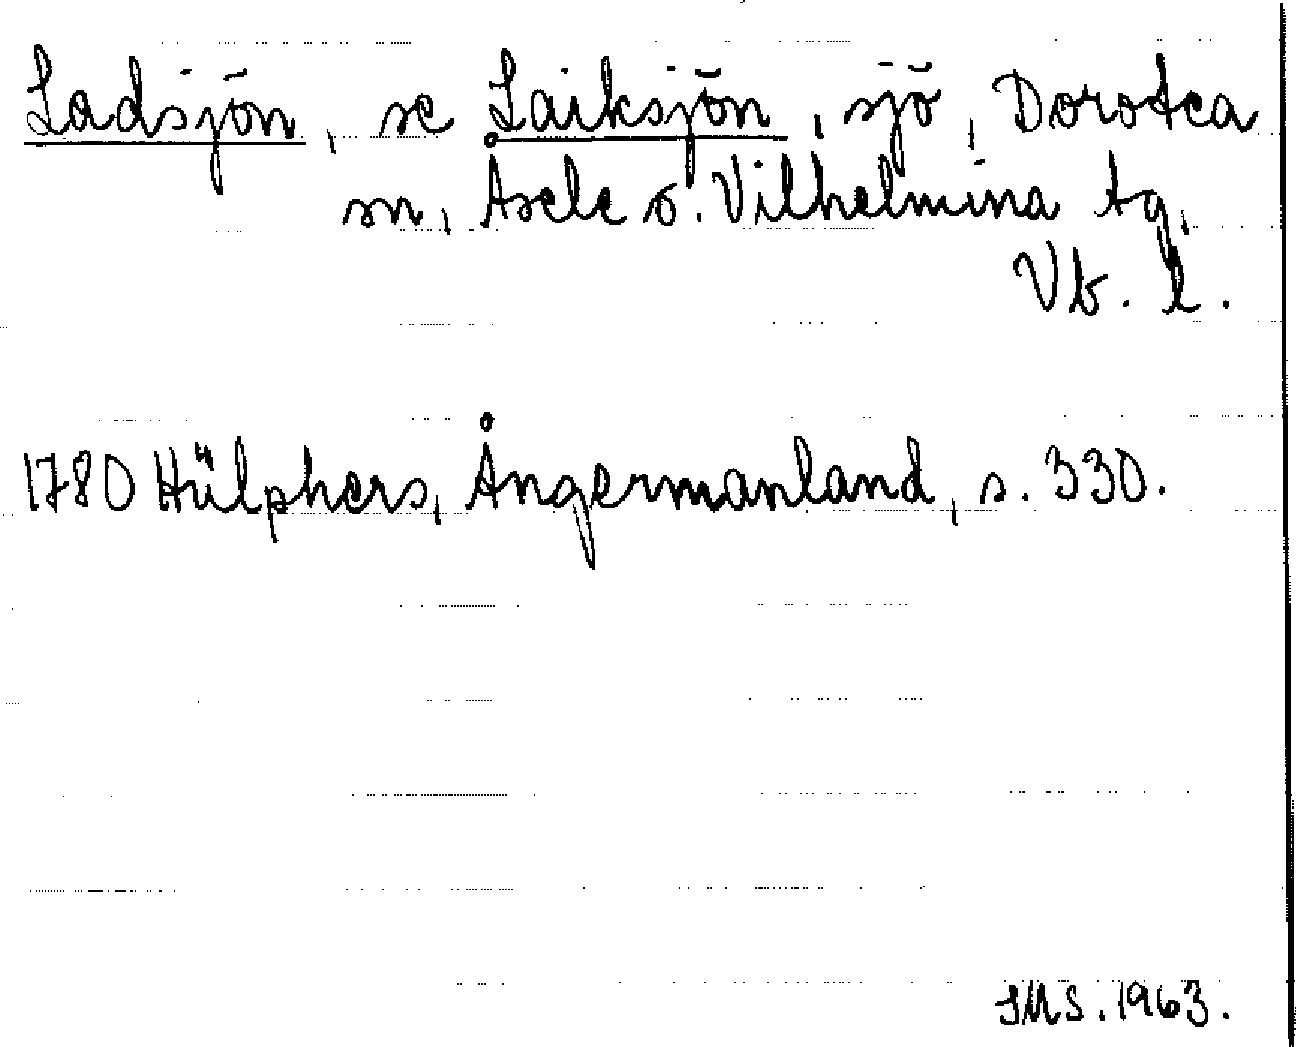 Ladsjön, se Laiksjön, sjö, Dorotea
sn, Åsele o. Vilhelmina tg,
Vb. l.
1780 Hülphers, Ångermanland, s. 330.
SMS. 1963.